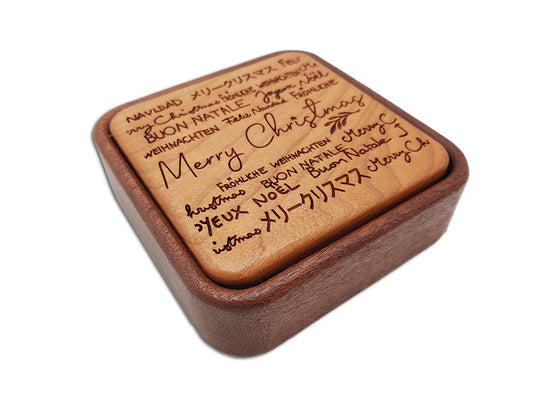 NAVIDAD メリークリスマス FELI
rry Christmas FRÖHLICHE WEIHNACHTEN Me
BUON NATALE Joyeux Noël
WEIHNACHTEN Feliz Navidad FRÖHLICHE
Merry Christmas
FRÖHLICHE WEIHNACHTEN Merry C
hristmas BUON NATALE Buon Natale J
OYEUX NOËL メリークリスマス Merry Ch
ristmas